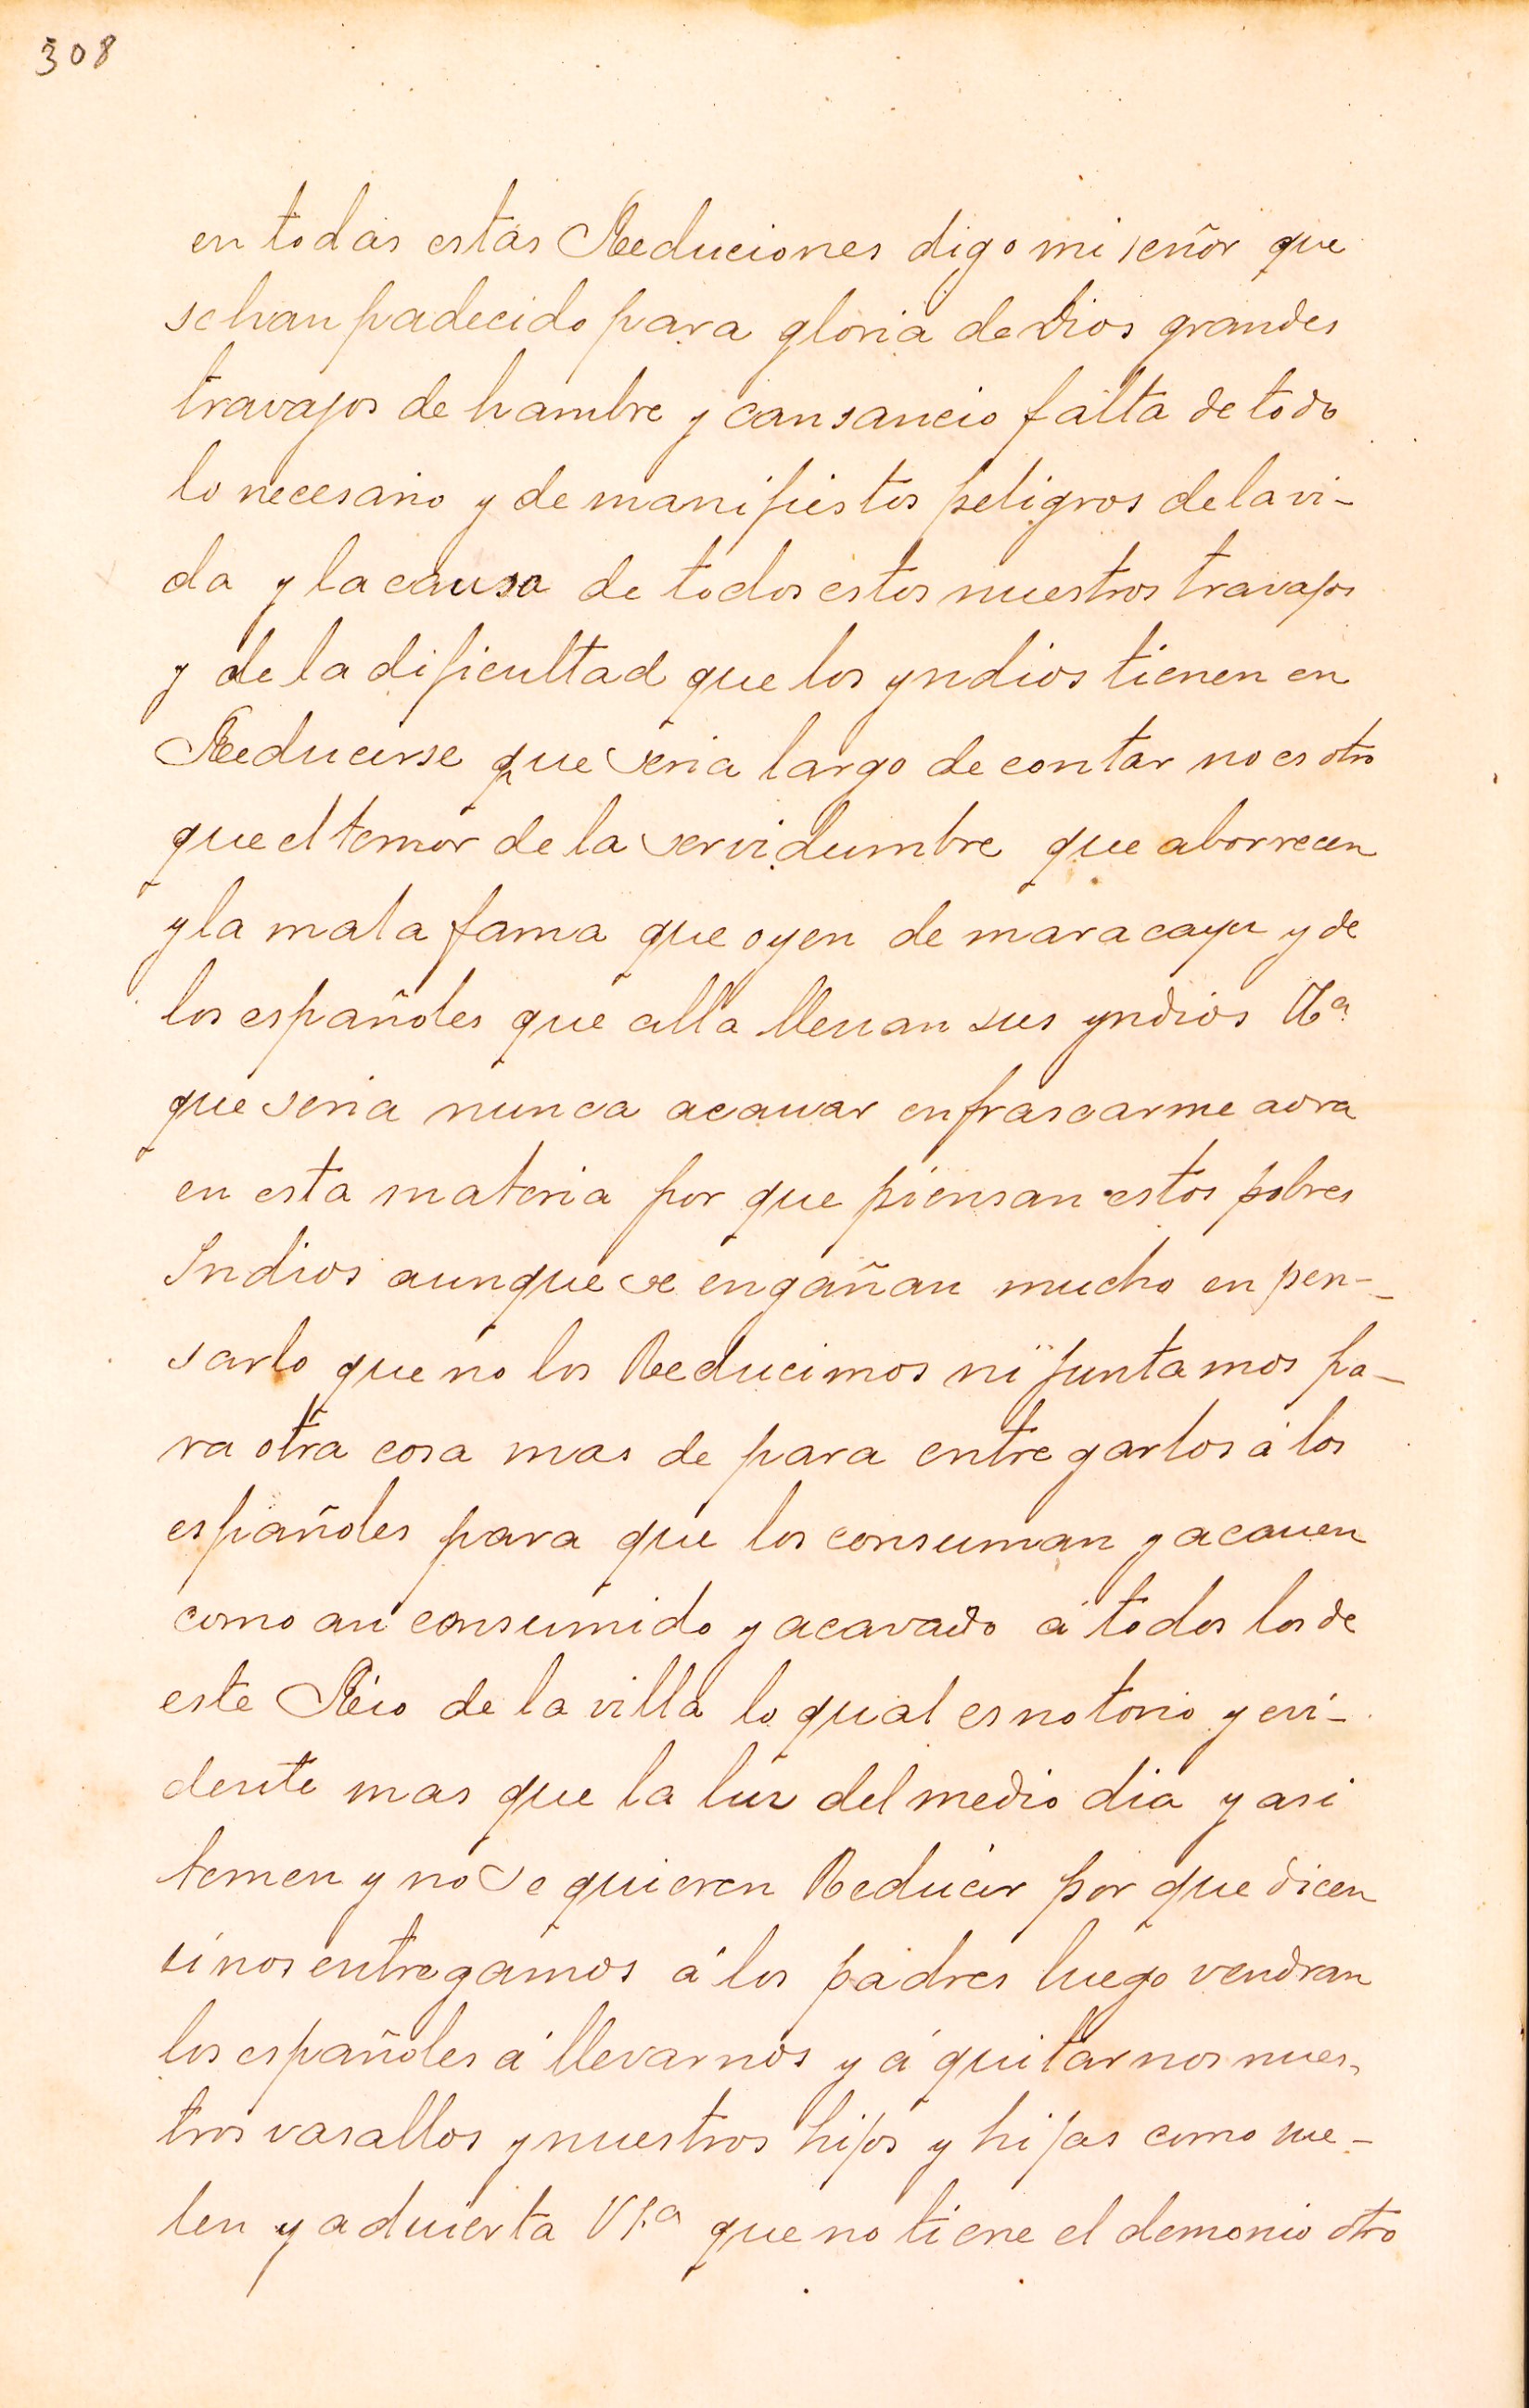 308
en todas estas Reduciones digo mi señor que
se han padecido para gloria de Dios grandes
travajos de hambre y cansancio falta de todo
lo necesario y de manifiestos peligros de la vi-
da y la causa de todos estos nuestros travajos
y de la dificultad que los yndios tienen en
Reducirse que seria largo de contar no es otro
que el temor de la servidumbre que aborrecen
y la mala fama que oyen de maracayu y de
los españoles que alla lleuan sus yndios
que seria nunca acauar enfrascarme aora
en esta materia por que piensan estos pobres
Indios aunque se engañan mucho en pen-
sarlo que no los Reducimos ni juntamos pa-
ra otra cosa mas de para entregarlos á los
españoles para que los consuman y acauen
como an consumido y acavado á todos los de
este Rio de la villa lo qual es notorio y evi-
dente mas que la luz del medio dia y asi
temen y no se quieren Reducir por que dicen
si nos entregamos á los padres luego vendran
los españoles á llevarnos y á quitarnos nues-
tros vasallos y nuestros hijos y hijas como sue-
len y aduierta VSª que no tiene el demonio otro